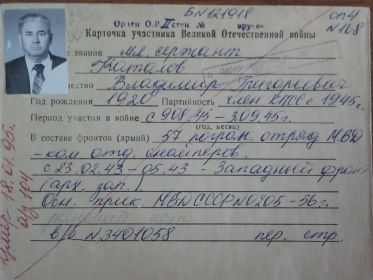 БN 121918
Орден О.В. II степ № вручен
оп 4
N 168
Карточка участника Великой Отечественной войны
звание мл. сержант
Владимир Григорьевич
Год рождения 1920 Партийность член КПСС 1945г.
Период участия в войне с 9.08.45 - 3.09.45г.
(год, месяц)
В составе фронтов (армий) 57 погран. отряд МВД
- ком. отд. снайперов.
с 23.02.43 - 05.43 - Западный фронт
(арх. зап.)
Осн. прик. МВД СССР N 0205 - 56г.
в/б N 3401058 пер. стр.
умер 18.01.95.